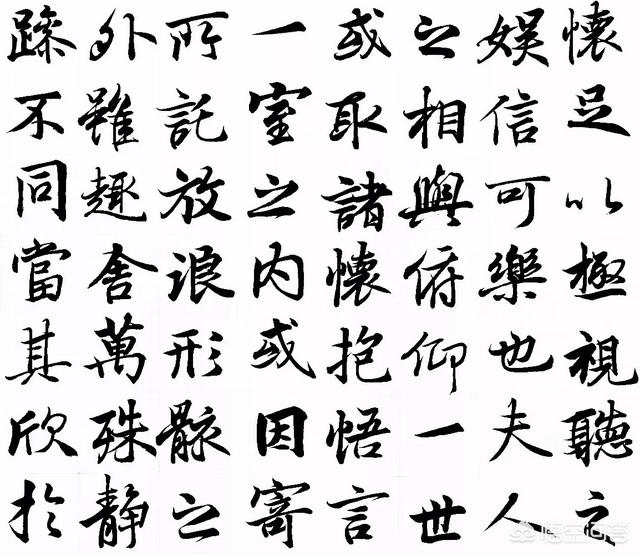 懷足以極視聽之
娛信可樂也夫人
之相與俯仰一世
或取諸懷抱悟言
一室之內或因寄
所託放浪形骸之
外雖趣舍萬殊靜
躁不同當其欣於
悟空问答